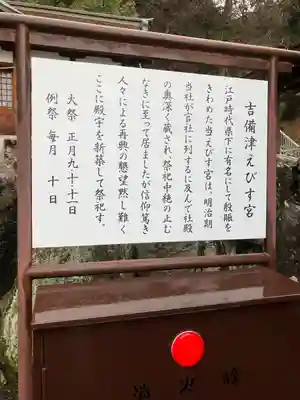 吉備津えびす宮
江戸時代県下に有名にして殷賑を
きわめた当えびす宮は、明治期
当社が官社に列するに及んで社殿
の奥深く蔵され祭祀中絶の止む
なきに至って居ましたが信仰篤き
人々による再興の懇望黙し難く
ここに殿宇を新築して祭祀す。
大祭 正月九・十・十一日
例祭 毎月 十日
消火栓